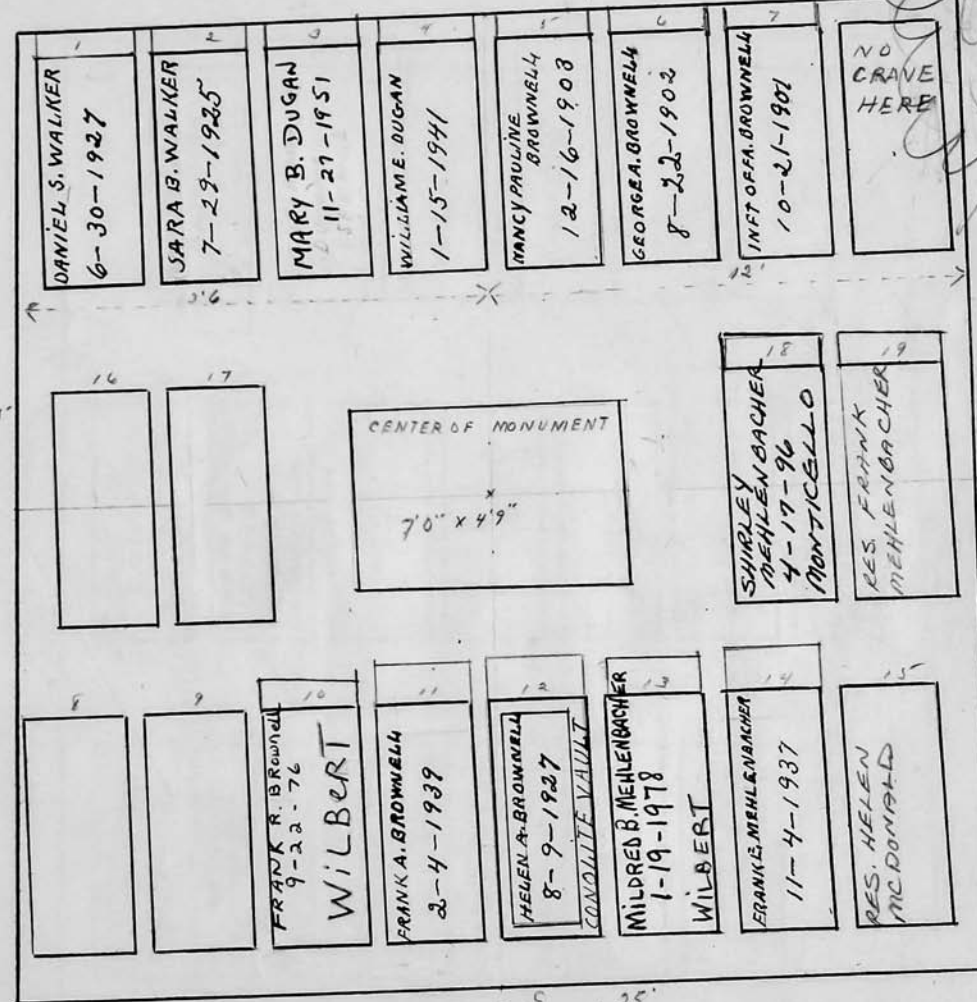 1
DANIEL S. WALKER
6-30-1927
2
SARA B. WALKER
7-29-1925
3
MARY B. DUGAN
11-27-1951
4
WILLIAM E. DUGAN
1-15-1941
5
NANCY PAULINE
BROWNELL
12-16-1903
6
GEORGE A. BROWNELL
8-22-1902
7
INFT OF F.A. BROWNELL
10-21-1901
NO
GRAVE
HERE
12'
16
17
CENTER OF MONUMENT
x
7'0" x 4'9"
18
SHIRLEY
MEHLENBACHER
4-17-96
MONTICELLO
19
RES. FRANK
MEHLENBACHER
8
9
10
FRANK R. BROWNELL
9-22-76
WILBERT
11
FRANK A. BROWNELL
2-4-1939
12
HELEN A. BROWNELL
8-9-1927
CONOLITE VAULT
13
MILDRED B. MEHLENBACHER
1-19-1978
WILBERT
14
FRANK E. MEHLENBACHER
11-4-1937
15
RES. HELEN
MCDONALD
S 25'